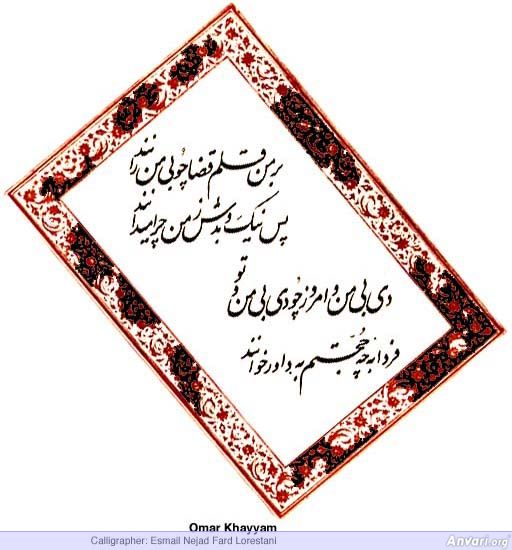 بر من قلم قضا چو بی من رانند
پس نیک و بدش ز من چرا میدانند
دی بی من و امروز چو دی بی من و تو
فردا به چه حجتم به داور خوانند
Omar Khayyam
Calligrapher: Esmail Nejad Fard Lorestani
Anvari.org